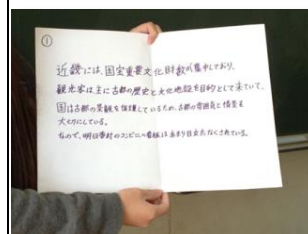 ①
近畿には、国宝重要文化財数が集中しており、
観光客は主に古都の歴史と文化施設を目的として来ていて、
国は古都の景観を保護しているため、古都の雰囲気と情景を
大切にしている。
なので、明日香村のコンビニの看板はあまり目立たなくされている。